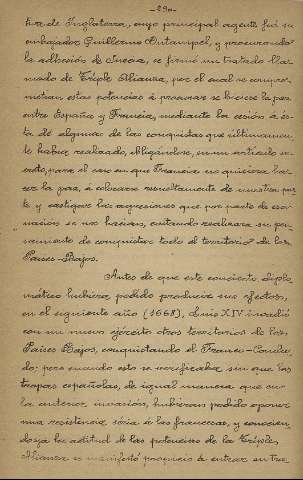 -290-
tiva de Inglaterra, cuyo principal agente fué su
embajador Guillermo Outampol, y procurando
la adhesión de Suecia, se firmó un tratado lla-
mado de Triple Alianza, por el cual se compro-
metían estas potencias á procurar se hiciese la paz
entre España y Francia, mediante la cesión á és-
ta de algunas de las conquistas que últimamen-
te había realizado, obligándose, en un artículo se-
creto, para el caso en que Francia no quisiera ha-
cer la paz, á colocarse resueltamente de nuestra par-
te y castigar las agresiones que por parte de esa
nación se nos hacían, evitando realizara su pen-
samiento de conquistar todo el territorio de los
Países-Bajos.
Antes de que este concierto diplo-
mático hubiera podido producir sus efectos,
en el siguiente año (1668), Luis XIV invadió
con un nuevo ejército otros territorios de los
Países Bajos, conquistando el Franco-Conda-
do; pero cuando esto se verificaba sin que las
tropas españolas, de igual manera que en
la anterior invasión, hubieran podido oponer
una resistencia séria á las francesas, y conocien-
dosya la actitud de las potencias de la Triple
Alianza se manifestó propicio á entrar en tra-